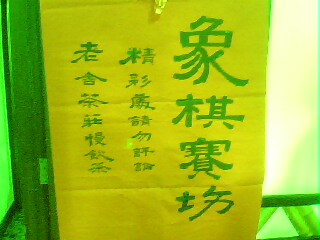 象棋賽坊
精彩處請勿評論
老舍茶莊慢飲茶